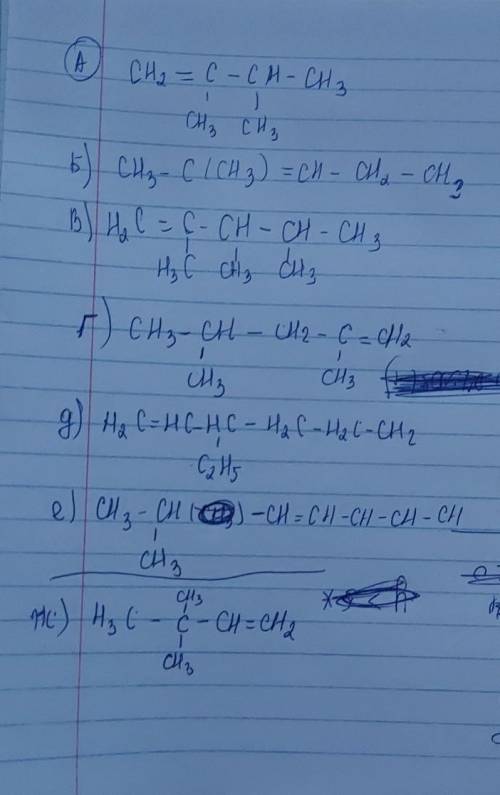 А) CH2 = C - CH - CH3
CH3 CH3
Б) CH3 - C (CH3) = CH - CH2 - CH3
В) H2C = C - CH - CH - CH3
H3C CH3 CH3
Г) CH3 - CH - CH2 - C = CH2
CH3 CH3
д) H2C = HC - HC - H2C - H2C - CH2
C2H5
е) CH3 - CH ( ) - CH = CH - CH - CH - CH
CH3
CH3
ж) H3C - C - CH = CH2
CH3